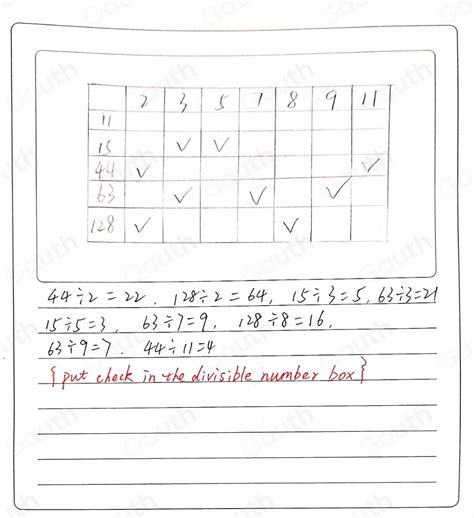 2 3 5 7 8 9 11
11
15 ✓ ✓
44 ✓ ✓
63 ✓ ✓ ✓
128 ✓ ✓
44÷2=22. 128÷2=64, 15÷3=5, 63÷3=21
15÷5=3, 63÷7=9, 128÷8=16,
63÷9=7. 44÷11=4
{put check in the divisible number box}